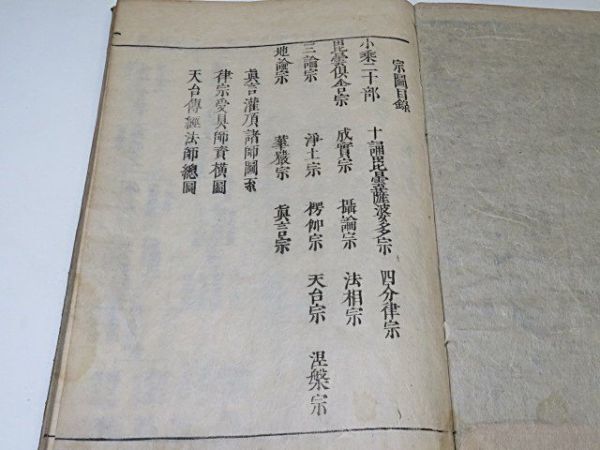 宗圖目錄
小乘二十部 十誦毘曇薩婆多宗 四分律宗
毘曇俱舍宗 成實宗 攝論宗 法相宗
三論宗 淨土宗 楞伽宗 天台宗 涅槃宗
地論宗 華嚴宗 眞言宗
眞言灌頂諸師圖系
律宗受具師資橫圖
天台傳經法師總圖